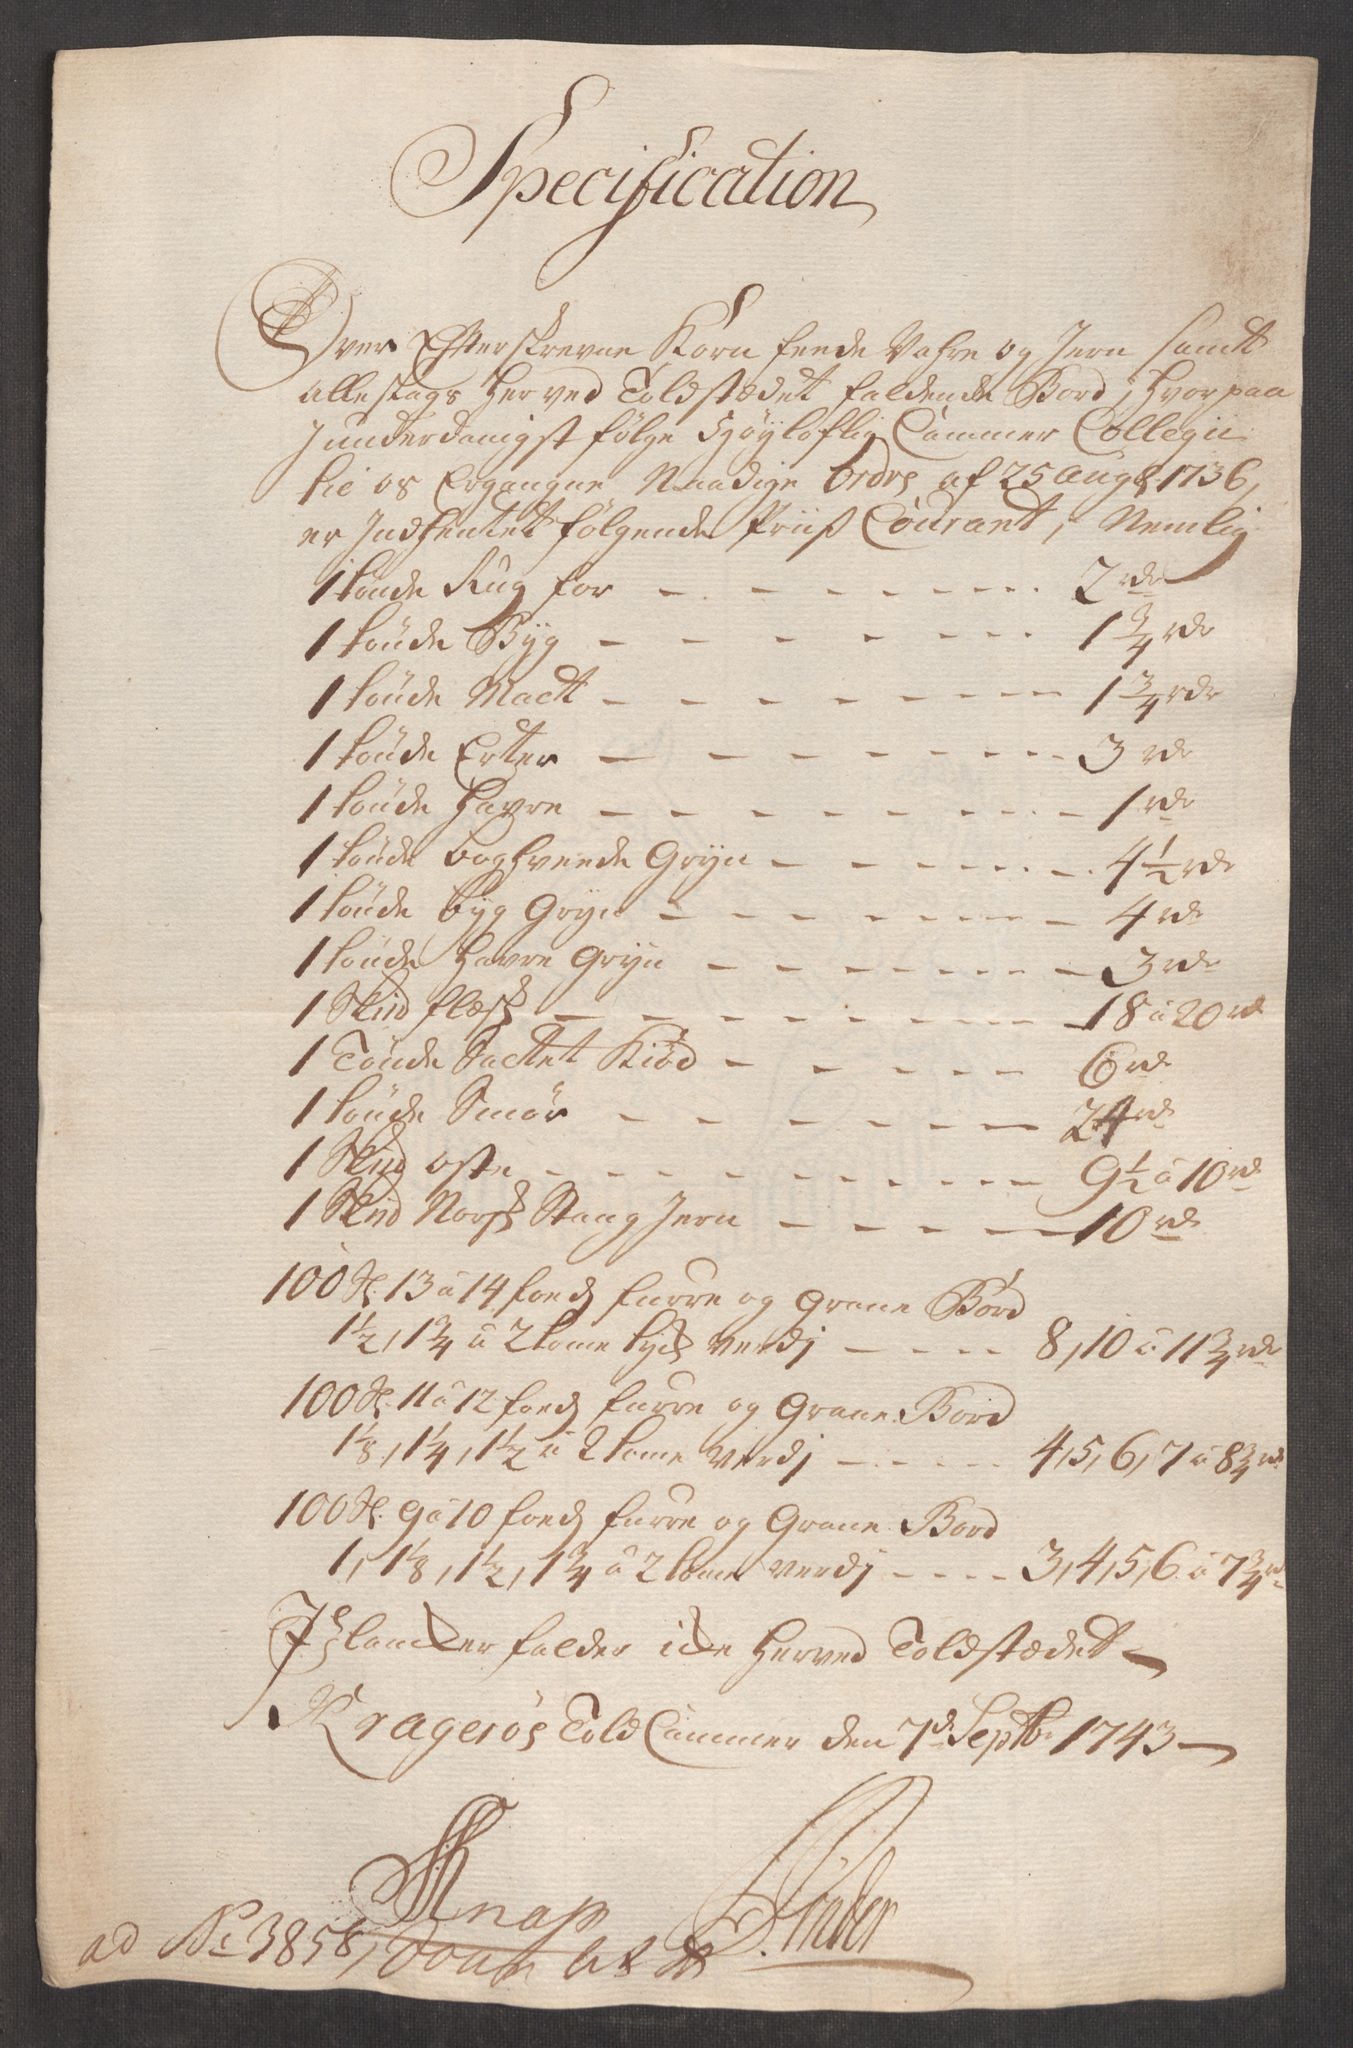 Specification
Over Efterskrevne Korn feede Vahre og Jern samt
alleslags her ved Toldstædet faldende Bord, hvorpaa
J underdanigst følge Høyloflig Cammer Collegii
til os Ergangne Naadige Ordre af 25 Aug: 1736,
er Indhentet følgende Priiß Courant, Nemlig
1 tønde Rug for - - - - - - - - - 2 rdr
1 tønde Byg - - - - - - - - 1 3/4 rdr
1 tønde Malt - - - - - - - - 1 3/4 rdr
1 tønde Erter - - - - - - - - 3 rdr
1 tønde Havre - - - - - - - - 1 rdr
1 tønde boghveede Gryn - - - - - - - 4 1/2 rdr
1 tønde byg Gryn - - - - - - - - 4 rdr
1 tønde Havre Gryn - - - - - - - - 3 rdr
1 Skpd flæsk - - - - - - - - - 18 a 20 rdr
1 Tønde Saltet Kiød - - - - - - 6 rdr
1 tønde Smør - - - - - - - 24 rdr
1 Skpd oste - - - - - - - - - 9 1/2 a 10 rdr
1 Skpd Norsk Stang Jern - - - - - 10 rdr
100 st. 13 a 14 foeds furre og Grane Bord
1 1/2, 1 3/4 a 2 tome tyck verdj - - - - 8, 10 a 11 3/4 rdr
100 st. 11 a 12 foeds furre og Grane Bord
1 1/8, 1 1/4, 1 1/2 a 2 tome verdj - - - - - 4, 5, 6, 7 a 8 3/4 rdr
100 st. 9 a 10 foeds furre og Grane Bord
1, 1 1/8, 1 1/2, 1 3/4 a 2 tome verdj - - - - 3, 4, 5, 6 a 7 3/4 rdr
falder icke herved Toldstædet
Kragerøes Told Cammer den 7de Septbr 1743
Knap
ad No 3858,